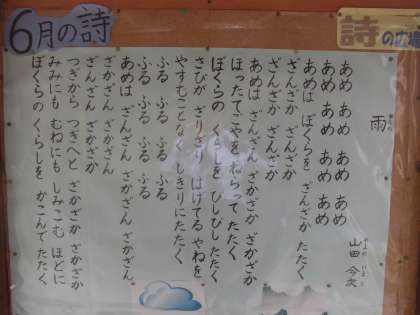 6月の詩
詩の広場
雨
山田 今次
あめ あめ あめ あめ
あめ あめ あめ あめ
あめは ぼくらを ざんざか たたく
ざんざか ざんざか
ざんざん ざかざか
あめは ざんざん ざかざか ざかざか
ほったてごやを ねらって たたく
ぼくらの くらしを びしびし たたく
さびが ざりざり はげてる やねを
やすむことなく しきりに たたく
ふる ふる ふる ふる
ふる ふる ふる ふる
あめは ざんざん ざかざん ざかざん
ざかざん ざかざん
ざんざん ざかざか
つぎから つぎへと ざかざか ざかざか
みみにも むねにも しみこむ ほどに
ぼくらの くらしを かこんで たたく